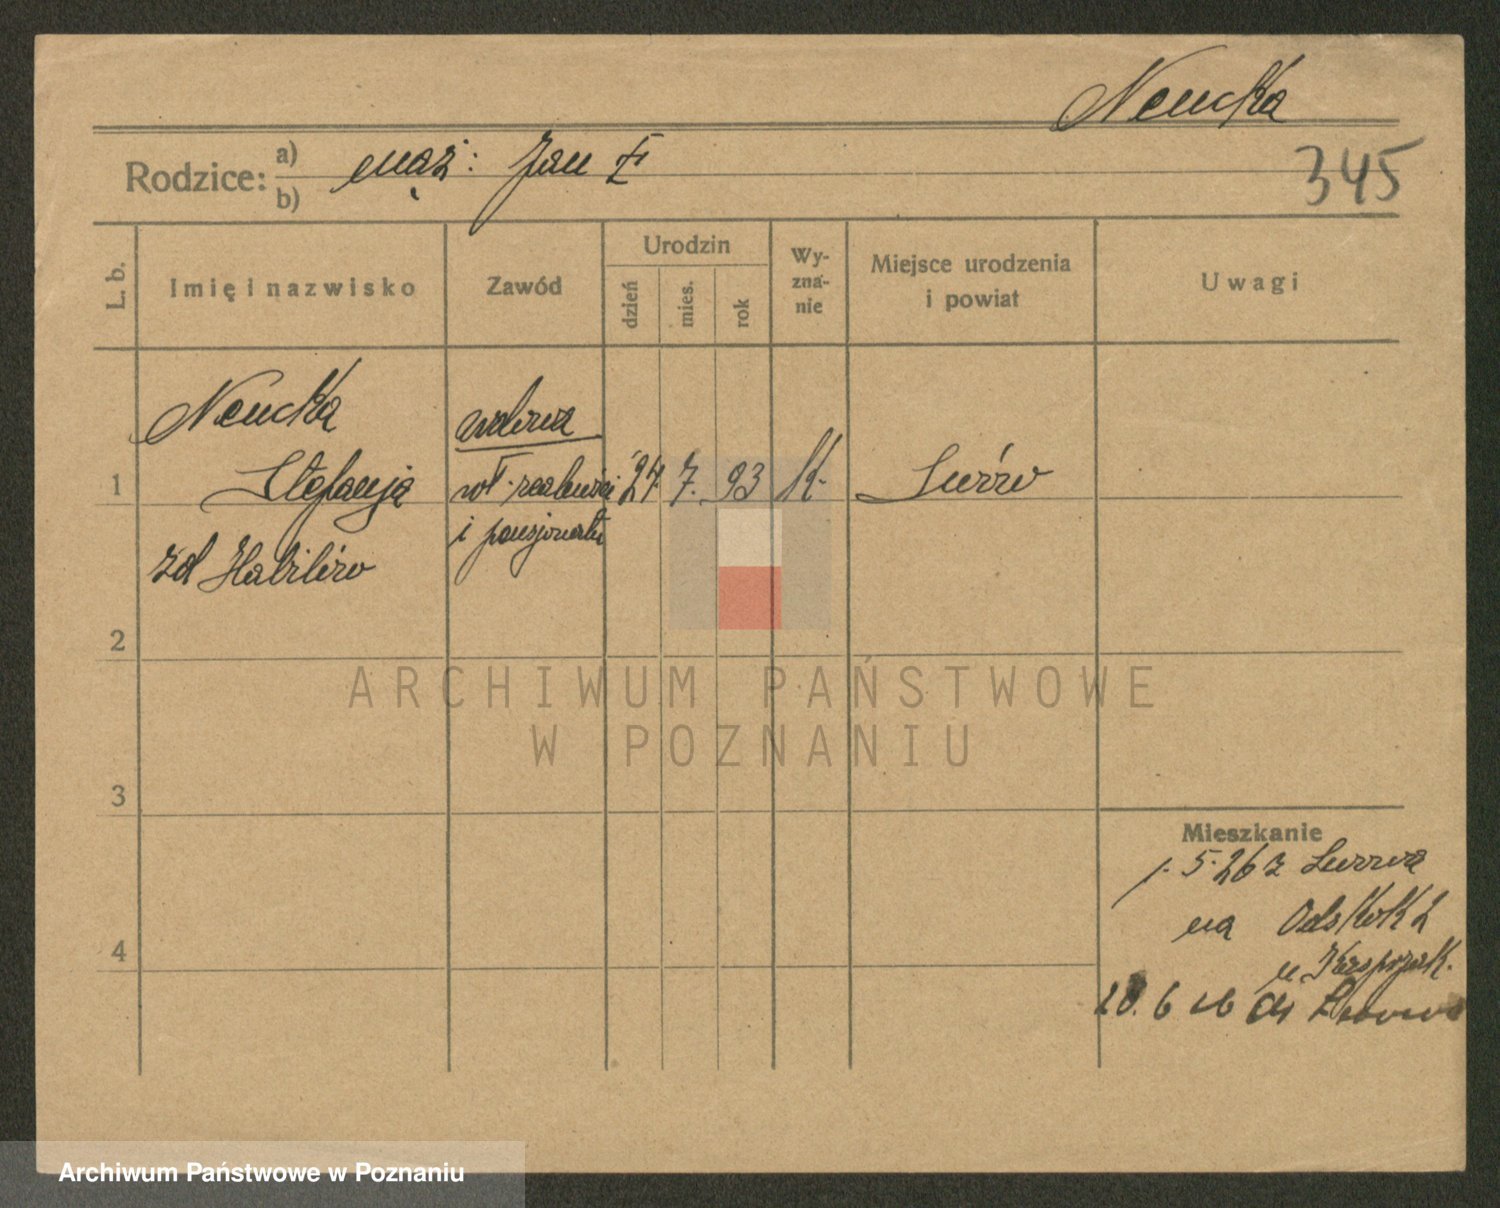 Nencka
Rodzice: a) mąż: Jan
b)
345
L. b.
Imię i nazwisko
Zawód
Urodzin
dzień
mies.
rok
Wy-
zna-
nie
Miejsce urodzenia
i powiat
Uwagi
Nencka
wdowa
1
Stefanja
wł. realności
24. 7. 93
K.
Lwów
i pensjonatu
zd
2
3
4
Mieszkanie
1. 5. 26 z Lwowa
na
u
6 26 do Lwowa
ARCHIWUM PAŃSTWOWE
W POZNANIU
Archiwum Państwowe w Poznaniu